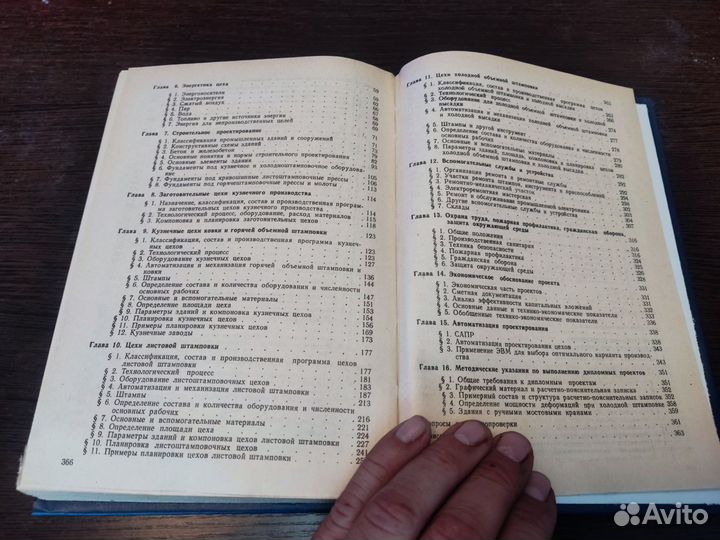 Глава 6. Энергетика цеха 59
§ 1. Энергоносители
§ 2. Электроэнергия
§ 3. Сжатый воздух
§ 4. Пар
§ 5. Вода
§ 6. Топливо и другие источники энергии
§ 7. Энергия для непроизводственных целей 69
Глава 7. Строительное проектирование
§ 1. Классификация промышленных зданий и сооружений 71
§ 2. Конструктивные схемы зданий
§ 3. Бетон и железобетон
§ 4. Основные понятия и нормы строительного проектирования
§ 5. Основные элементы здания
§ 6. Фундаменты под кузнечное и холодноштамповочное оборудование
§ 7. Фундаменты под кривошипные листоштамповочные прессы 105
§ 8. Фундаменты под горячештамповочные прессы и молоты 106
Глава 8. Заготовительные цехи кузнечного производства 114
§ 1. Назначение, классификация, состав и производственная программа заготовительных цехов 114
§ 2. Технологический процесс, оборудование, расход материалов 116
§ 3. Компоновка и планировка заготовительных цехов 118
Глава 9. Кузнечные цехи ковки и горячей объемной штамповки 123
§ 1. Классификация, состав и производственная программа кузнечных цехов 123
§ 2. Технологический процесс
§ 3. Оборудование кузнечных цехов
§ 4. Автоматизация и механизация горячей объемной штамповки и ковки 136
§ 5. Штампы 144
§ 6. Определение состава и количества оборудования и численности основных рабочих 147
§ 7. Основные и вспомогательные материалы 151
§ 8. Определение площади цеха 154
§ 9. Параметры зданий и компоновка кузнечных цехов 154
§ 10. Планировка кузнечных цехов 156
§ 11. Примеры планировки кузнечных цехов 169
§ 12. Кузнечные заводы 173
Глава 10. Цехи листовой штамповки 177
§ 1. Классификация, состав и производственная программа цехов листовой штамповки 177
§ 2. Технологический процесс 181
§ 3. Оборудование листоштамповочных цехов 183
§ 4. Автоматизация и механизация листовой штамповки 187
§ 5. Штампы 213
§ 6. Определение состава и количества оборудования и численности основных рабочих 216
§ 7. Основные и вспомогательные материалы 221
§ 8. Определение площади цеха 224
§ 9. Параметры зданий и компоновка цехов листовой штамповки 227
§ 10. Планировка листоштамповочных цехов
§ 11. Примеры планировки цехов листовой штамповки
366
Глава 11. Цехи холодной объемной штамповки
§ 1. Классификация, состав и производственная программа цехов холодной объемной штамповки и холодной высадки
§ 2. Технологический процесс
§ 3. Оборудование для холодной объемной штамповки и холодной высадки
§ 4. Автоматизация и механизация холодной объемной штамповки и холодной высадки
§ 5. Штампы и другой инструмент
§ 6. Определение состава и количества оборудования и численности основных рабочих
§ 7. Основные и вспомогательные материалы
§ 8. Параметры зданий, площади, компоновка и планировка цехов холодной объемной штамповки
Глава 12. Вспомогательные службы и устройства
§ 1. Организация ремонта в цехе 292
§ 2. Участки ремонта штампов, инструмента и приспособлений
§ 3. Ремонтно-механическая мастерская
§ 4. Электроремонтная мастерская
§ 5. Ремонт и обслуживание промышленной электроники
§ 6. Другие вспомогательные службы и устройства
§ 7. Склады
Глава 13. Охрана труда, пожарная профилактика, гражданская оборона, защита окружающей среды
§ 1. Общие положения
§ 2. Производственная санитария
§ 3. Техника безопасности
§ 4. Пожарная профилактика
§ 5. Гражданская оборона
§ 6. Защита окружающей среды
Глава 14. Экономическое обоснование проекта
§ 1. Экономическая часть проектов 331
§ 2. Сметная документация
§ 3. Анализ эффективности капитальных вложений
§ 4. Основные данные и технико-экономические показатели
§ 5. Обобщенные технико-экономические показатели
Глава 15. Автоматизация проектирования 338
§ 1. САПР 338
§ 2. Автоматизация проектирования цехов
§ 3. Применение ЭВМ для выбора оптимального варианта производства 343
Глава 16. Методические указания по выполнению дипломных проектов
§ 1. Общие требования к дипломным проектам
§ 2. Графический материал и расчетно-пояснительная записка
§ 3. Примерный состав и структура расчетно-пояснительных записок 352
§ 4. Определение мощности деформаций при холодной штамповке 358
§ 5. Здания с ручными мостовыми кранами 359
361
363
Avito